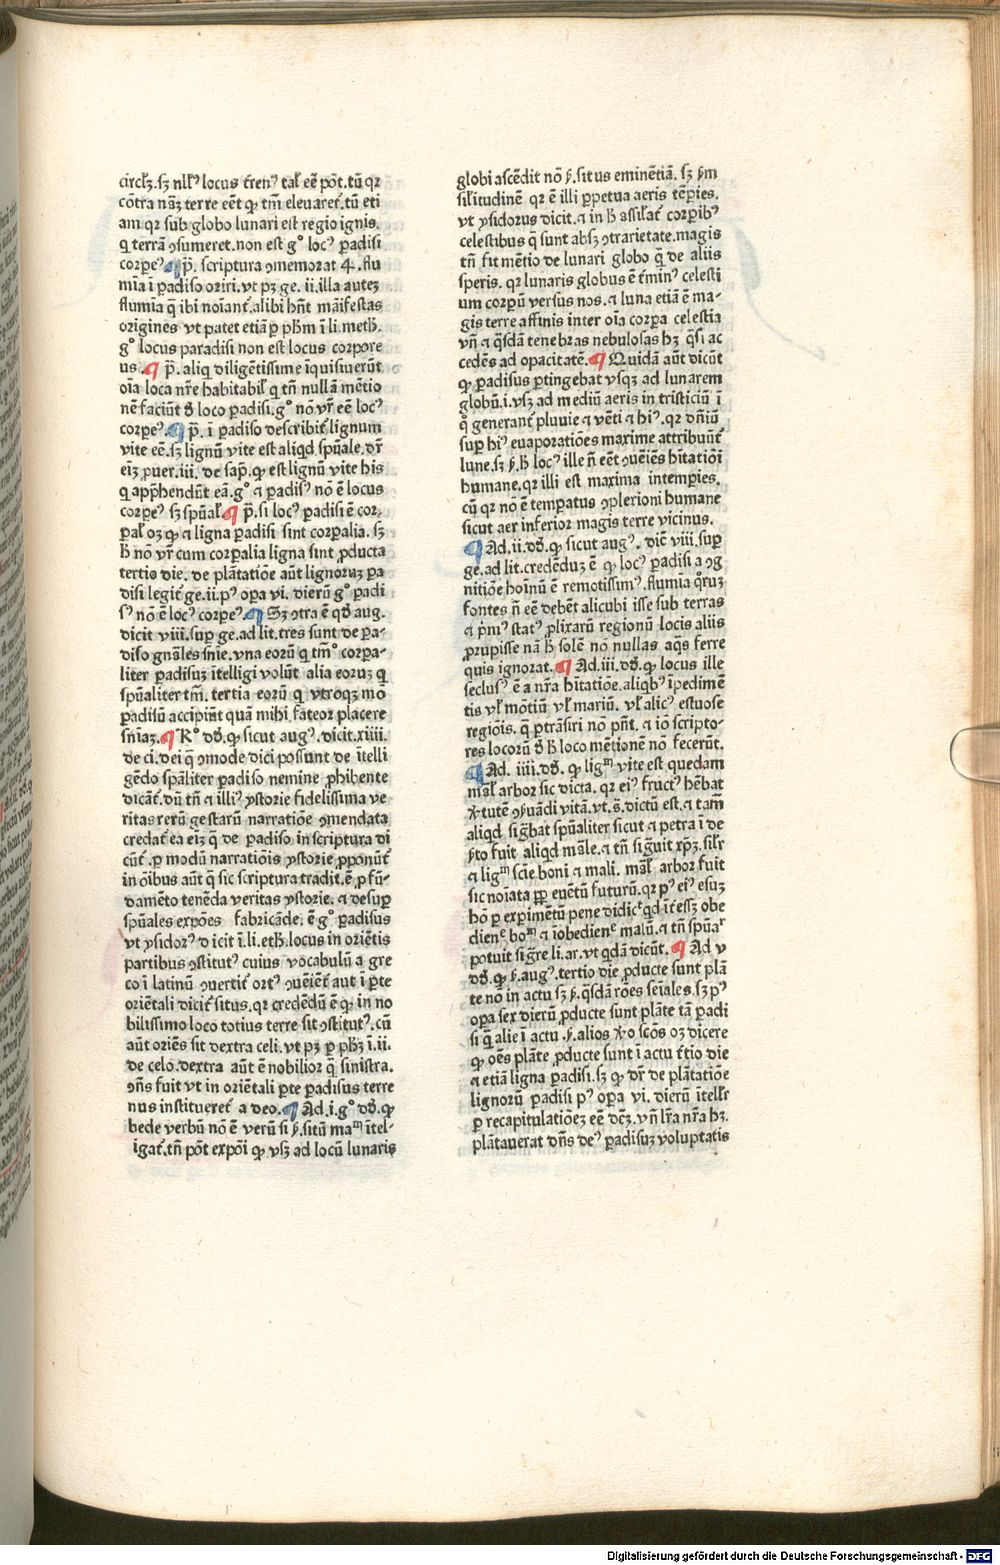 circl̃ʒ. sʒ nll̓ꝰ locus t̃renꝰ tal̓ eẽ põt. tũ qꝛ
cõtra nãʒ terre eẽt ꝙ tm̃ eleuaret̃. tũ eti
am qꝛ sub globo lunari est regio ignis.
q̃ terrã ꝯsumeret. non est g° locꝰ ꝑadisi
corꝑeꝰ. ¶ p̃. scriptura ꝯmemorat 4. flu
mĩa ĩ ꝑadiso oriri. vt pʒ ge. ii. illa auteʒ
flumĩa q̃ ibi noĩant̃. alibi hñt mãifestas
origines vt patet etiã ꝑ pħm ĩ li. metħ.
g° locus paradisi non est locus corpore
us. ¶ p̃. aliq̃ diligẽtissime ĩquisiuerũt
oĩa loca nr̃e habitabil̓ q̃ tñ nullã mẽtio
nẽ faciũt ð loco ꝑadisi. g° nõ vr̃ eẽ locꝰ
corꝑeꝰ. ¶ p̃. ĩ ꝑadiso describit̃ lignum
vite eẽ. sʒ lignũ vite est aliqd spũale. dr̃
eĩʒ ꝓuer. iii. de sap̃. ꝙ est lignũ vite his
q̃ app̃hendũt eã. g° ⁊ ꝑadisꝰ nõ ẽ locus
corꝑeꝰ sʒ spũal̓. ¶ p̃. si locꝰ ꝑadisi ẽ cor.
ꝑal̓ oʒ ꝙ ⁊ ligna ꝑadisi sint corꝑalia. sʒ
ħ nõ vr̃ cum corꝑalia ligna sint ꝓducta
tertio die. de plãtatiõe aũt lignoruʒ ꝑa
disi legit̃ ge. ii. pꝰ oꝑa vi. dierũ g° ꝑadi
sꝰ nõ ẽ locꝰ corꝑeꝰ. ¶ Sʒ ꝯtra ẽ qð aug.
dicit viii. suꝑ ge. ad lit. tres sunt de ꝑa-
diso gñales snĩe. vna eorũ q̃ tm̃° corꝑa-
liter ꝑadisuʒ ĩtelligi volũt alia eoruʒ q̃
spũaliter tm̃. tertia eorũ q̃ vtroqʒ mõ
ꝑadisũ accipiñt quã mihi fateor placere
snĩaʒ. ¶ R° dð. ꝙ sicut augꝰ. dicit. xiiii.
de ci. dei q̃ ꝯmode dici possunt de ĩtelli
gẽdo spãliter ꝑadiso nemine ꝓhibente
dicãt̃. dũ tñ ⁊ illiꝰ ystorie fidelissima ve
ritas rerũ gestarũ narratiõe ꝯmendata
credat̃ ea eĩʒ q̃ de ꝑadiso in scriptura di
cũt̃. ꝑ modũ narratiõis ystorie ꝓponũt̃
in õibus aũt q̃ sic scriptura tradit. ẽ ꝓ fũ-
damẽto tenẽda veritas ystorie. ⁊ desuꝑ
spũales expões fabricãde. ẽ g° ꝑadisus
vt ysidorꝰ dicit ĩ. li. etħ. locus in oriẽtis
partibus ꝯstitutꝰ cuius vocabulũ a gre
co ĩ latinũ ꝯuertit̃ ortꝰ ꝯuẽiẽt̃ aut ĩ ꝑte
oriẽtali dicit̃ situs. qꝛ credẽdũ ẽ ꝙ in no
bilissimo loco totius terre sit ꝯstitutꝰ. cũ
aũt oriẽs sit dextra celi. vt pʒ ꝑ pħʒ ĩ. ii.
de celo. dextra aũt ẽ nobilior q̃ sinistra.
ꝯñs fuit vt in oriẽtali ꝑte ꝑadisus terre
nus institueret̃ a deo. ¶ Ad. i. g° dð. ꝙ
bede verbũ nõ ẽ verũ si ẜ. sitũ maᵐ ĩtel-
igat̃. tñ põt expõi ꝙ vsʒ ad locũ lunaris
globi ascẽdit nõ ẜ. situs eminẽtiã. sʒ ẜm
sil̓itudinẽ qꝛ ẽ illi ꝑpetua aeris tẽꝑies.
vt ysidorus dicit. ⁊ in ħ assil̓at̃ corꝑibꝰ
celestibus q̃ sunt absʒ ꝯtrarietate. magis
tñ fit mẽtio de lunari globo q̃ de aliis
speris. qꝛ lunaris globus ẽ t̃minꝰ celesti
um corꝑũ versus nos. ⁊ luna etiã ẽ ma-
gis terre affinis inter oĩa corꝑa celestia
vñ ⁊ q̃sdã tenebras nebulosas hʒ q̃si ac
cedẽs ad opacitatẽ. ¶ Quidã aũt dicũt
ꝙ ꝑadisus ꝑtingebat vsqʒ ad lunarem
globũ. i. vsʒ ad mediũ aeris in tristiciũ ĩ
q° generant̃ pluuie ⁊ vẽti ⁊ hiꝰ. qꝛ dñiũ
suꝑ hiꝰ euaporatiões maxime attribuũt̃
lune. sʒ ẜ. ħ locꝰ ille ñ eẽt ꝯuẽiẽs hĩtatiõi
humane. qꝛ illi est maxima intemꝑies.
cũ qꝛ nõ ẽ temꝑatus ꝯplexioni humane
sicut aer inferior magis terre vicinus.
¶ Ad. ii. dð. ꝙ sicut augꝰ. dic̃ viii. suꝑ
ge. ad lit. credẽduʒ ẽ ꝙ locꝰ ꝑadisi a ꝯg
nitiõe hoĩnũ ẽ remotissimꝰ. flumĩa q̃ꝛuʒ
fontes ñ eẽ debẽt alicubi isse sub terras
⁊ p̃mꝰ statꝰ ꝓlixarũ regionũ locis aliis
ꝓrupisse nã ħ solẽ nõ nullas aq̃s ferre
quis ignorat. ¶ Ad. iii. dð. ꝙ locus ille
seclusꝰ ẽ a nr̃a hĩtatiõe. aliqbꝰ ĩpedimẽ
tis vl̓ mõtiũ vl̓ mariũ. vl̓ alicꝰ estuose
regiõis. q̃ ꝑtrãsiri nõ pñt. ⁊ iõ scripto-
res locorũ ð ħ loco mẽtionẽ nõ fecerũt.
¶ Ad. iiii. dð. ꝙ ligᵐ vite est quedam
mal̓ arbor sic dicta. qꝛ eiꝰ fructꝰ hẽbat
ꝟtutẽ ꝯẜuãdi vitã. vt. s. dictũ est. ⁊ tam̃
aliqd sig̃bat spũaliter sicut ⁊ petra ĩ de
ẜto fuit aliqd mãle. ⁊ tñ sig̃uit xp̃ʒ. sil̓r
⁊ ligᵐ scie boni ⁊ mali. mãl̓ arbor fuit
sic noĩata ꝓpꝑ euẽtũ futurũ. qꝛ pꝰ eiꝰ esuʒ
hõ ꝑ exꝑimẽtũ pene didicᵗ qd ĩt̃ eẽʒ obe
dienᵉ boᵐ ⁊ ĩobedienᵉ malũ. ⁊ tñ spũal̓
potuit sig̃re li. ar. vt qdã dicũt. ¶ Ad v
dð. ꝙ ẜ. augꝰ. tertio die ꝓducte sunt plã
te nõ in actu sʒ ẜ. q̃sdã rões seĩales. sʒ pꝰ
oꝑa sex dierũ ꝓducte sunt plãte tã ꝑadi
si q̃ alie ĩ actu. ẜ. alios ꝟo sc̃os oʒ dicere
ꝙ oẽs plãte ꝓducte sunt ĩ actu t̃tio die
⁊ etiã ligna ꝑadisi. sʒ ꝙ dr̃ de plãtatiõe
lignorũ ꝑadisi pꝰ oꝑa vi. dierũ ĩtell̓r
ꝑ recapitulatiõeʒ eẽ dc̃ʒ. vñ lr̃a nr̃a hʒ.
plãtauerat dñs deꝰ ꝑadisuʒ voluptatis
Digitalisierung gefördert durch die Deutsche Forschungsgemeinschaft - DFG